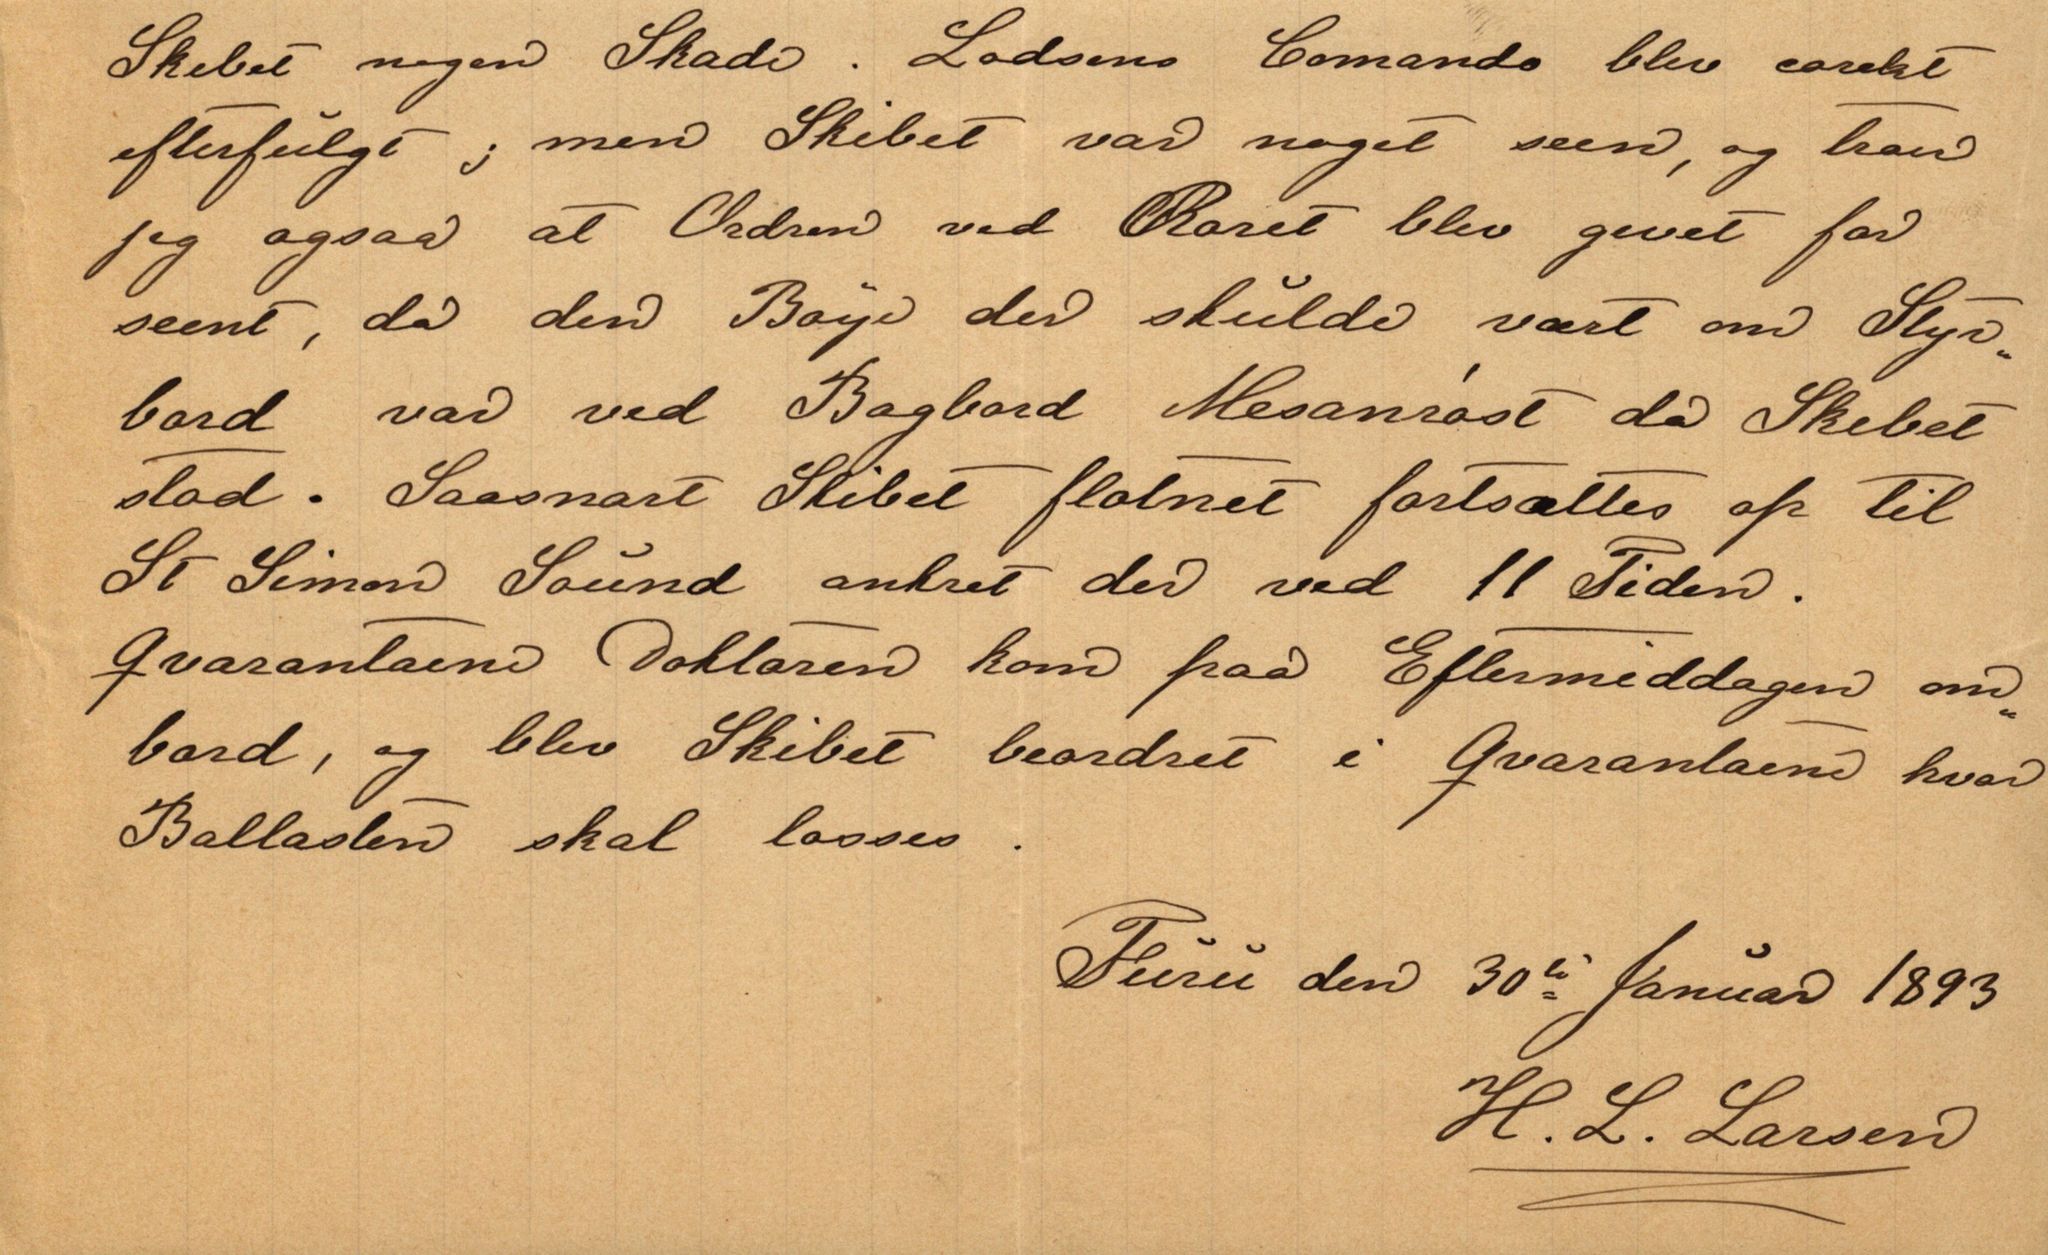 Skibet nogen Skade. Lodsens Comando blev corekt
efterfulgt; men Skibet var noget seen, og troer
jeg ogsaa at Ordren ved Roret blev givet for
seent, da den Böÿe der skulde vært om Styr„
bord var ved Bagbord Mesanröst da Skibet
stod. Saasnart Skibet flotnet fortsættes op til
St Simon Sound ankret der ved 11 Tiden.
Qvarantaine Doktoren kom paa Eftermiddagen om„
bord, og blev Skibet beordret i Qvarantaine hvor
Ballasten skal losses.
Furu den 30te Januar 1893
H. L. Larsen